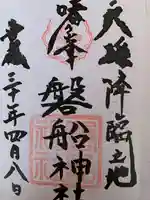 天孫降臨之地
奉拝
磐船神社
三十年四月八日